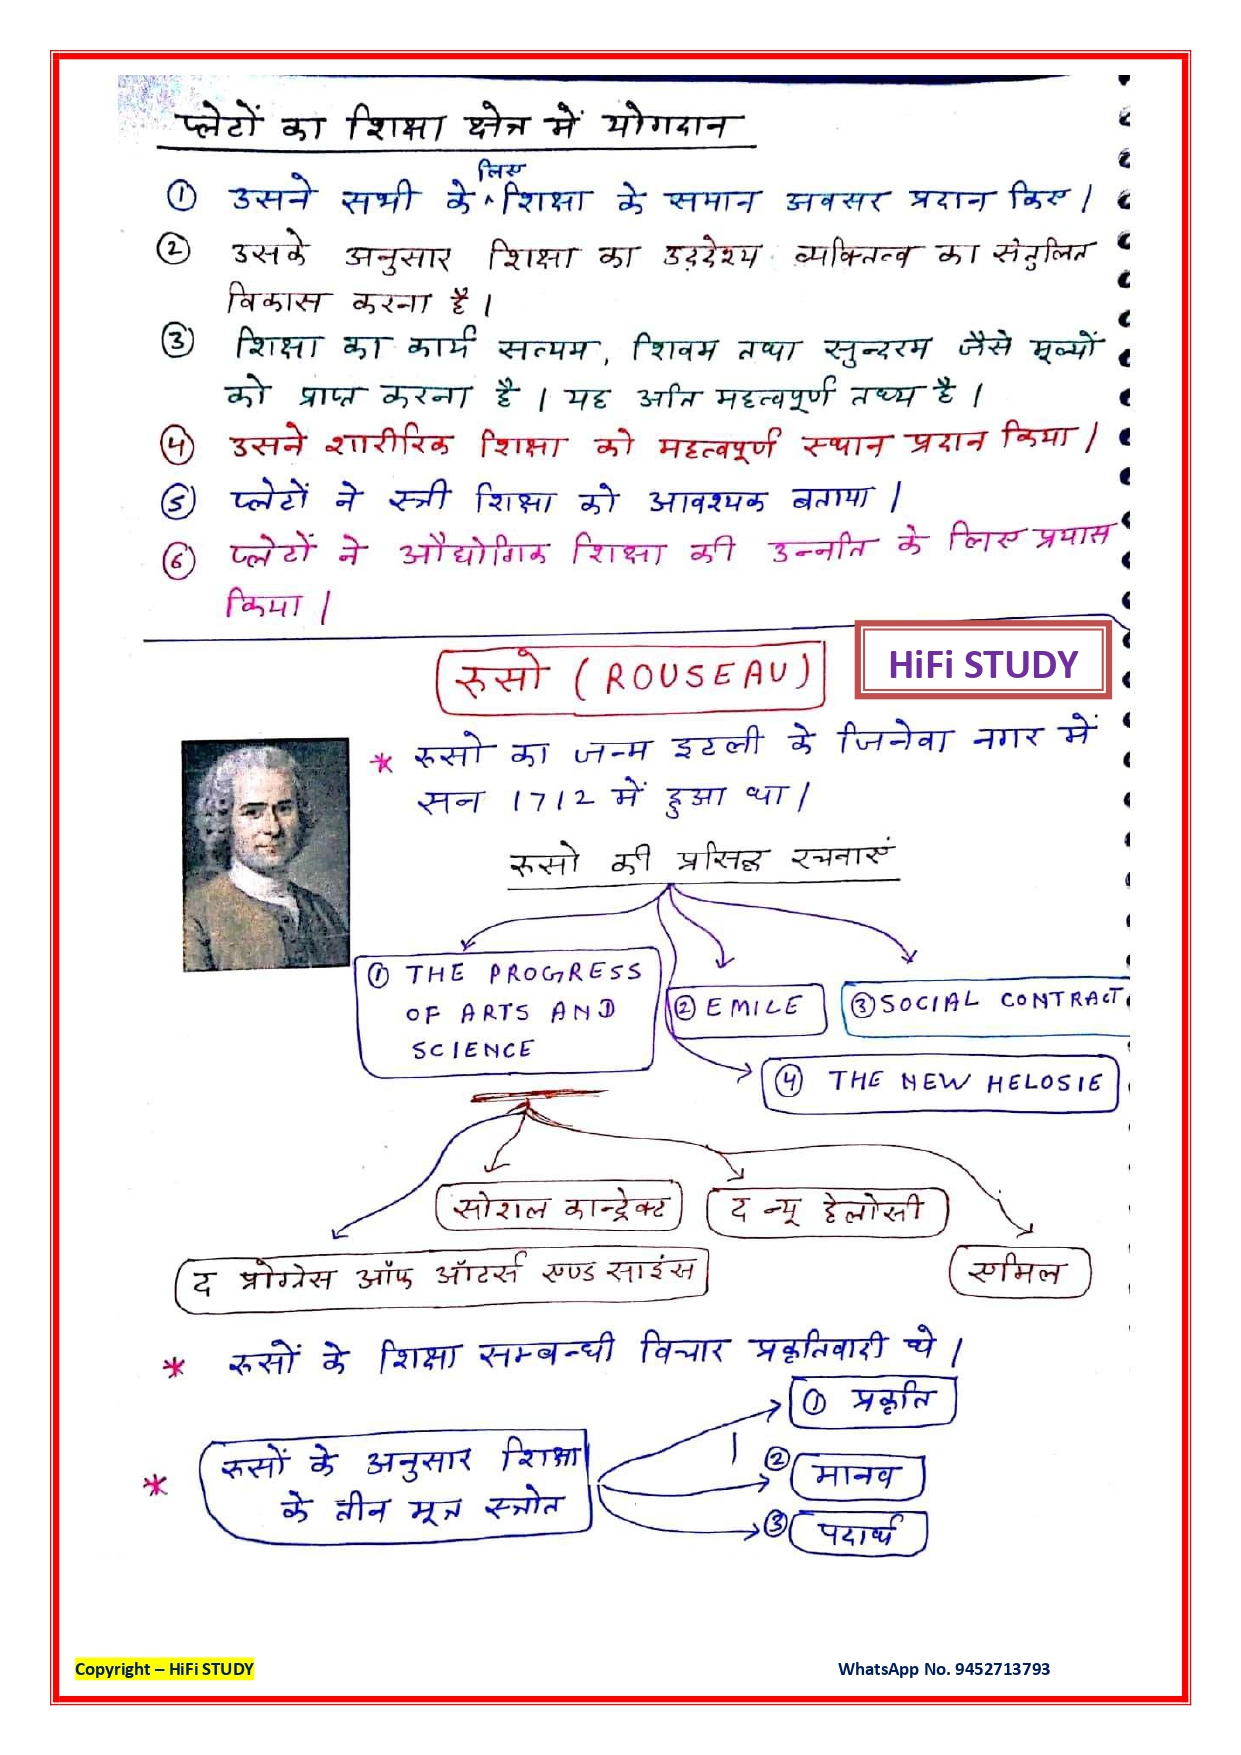 प्लेटों का शिक्षा क्षेत्र में योगदान
① उसने सभी के लिए शिक्षा के समान अवसर प्रदान किए।
② उसके अनुसार शिक्षा का उद्देश्य व्यक्तित्व का संतुलित
विकास करना है।
③ शिक्षा का कार्य सत्यम, शिवम तथा सुन्दरम जैसे मूल्यों
को प्राप्त करना है। यह अति महत्वपूर्ण तथ्य है।
④ उसने शारीरिक शिक्षा को महत्वपूर्ण स्थान प्रदान किया।
⑤ प्लेटों ने स्त्री शिक्षा को आवश्यक बताया।
⑥ प्लेटों ने औद्योगिक शिक्षा की उन्नति के लिए प्रयास
किया।
HiFi STUDY
रुसो (ROUSEAU)
* रुसो का जन्म इटली के जिनेवा नगर में
सन 1712 में हुआ था।
रुसो की प्रसिद्ध रचनाएं
① THE PROGRESS
OF ARTS AND
SCIENCE
② EMILE
③ SOCIAL CONTRACT
④ THE NEW HELOSIE
सोशल कान्ट्रेक्ट
द न्यू हेलोसी
द प्रोग्रेस ऑफ ऑटर्स एण्ड साइंस
एमिल
* रुसों के शिक्षा सम्बन्धी विचार प्रकृतिवादी थे।
① प्रकृति
* रुसों के अनुसार शिक्षा
के तीन मूत्र स्त्रोत
② मानव
③ पदार्थ
Copyright – HiFi STUDY
WhatsApp No. 9452713793